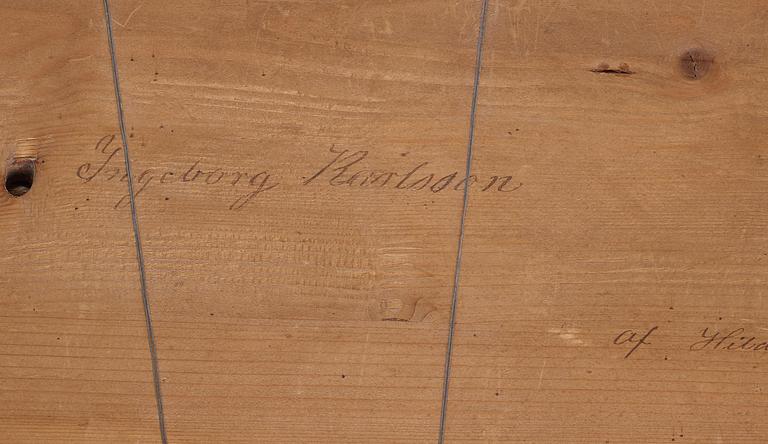 Ingeborg Karlsson
af